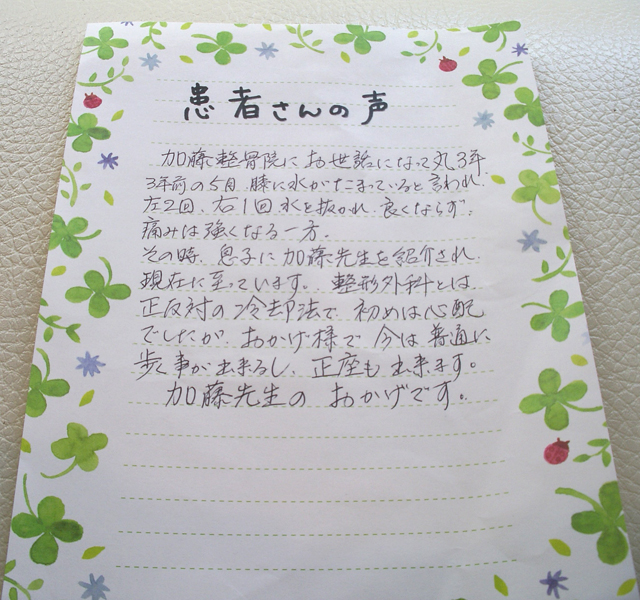 患者さんの声
加藤整骨院に お世話になって丸3年
3年前の5月、膝に水がたまっていると言われ、
左2回、右1回水を抜かれ、良くならず、
痛みは強くなる一方。
その時、息子に加藤先生を紹介され
現在に至っています。整形外科とは
正反対の冷却法で、初めは心配
でしたが、おかげ様で今は普通に
歩く事が出来るし、正座も出来ます。
加藤先生の おかげです。